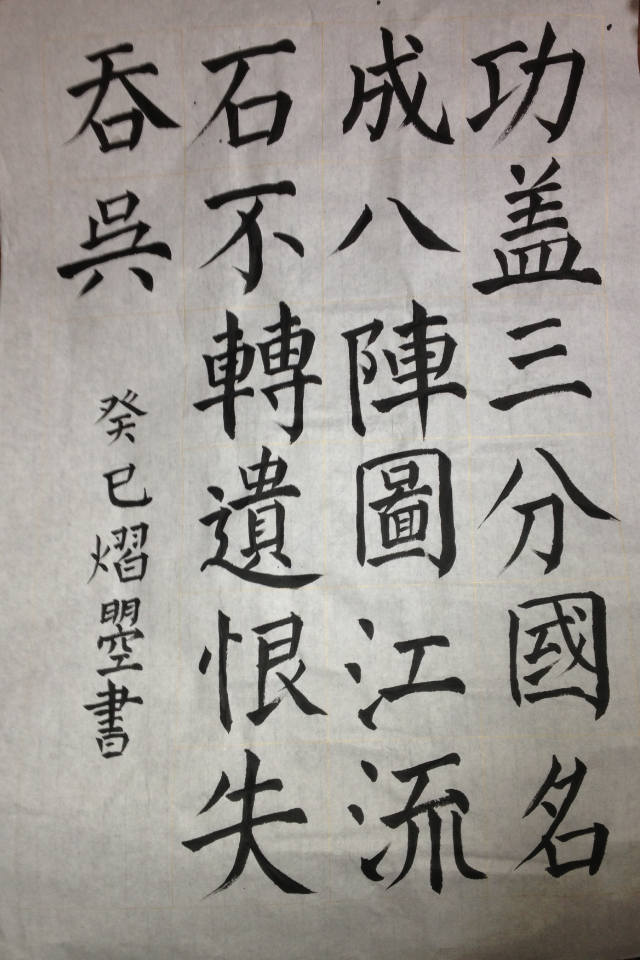 功盖三分國名
成八陣圖江流
石不轉遺恨失
吞吳
癸巳熠曌書